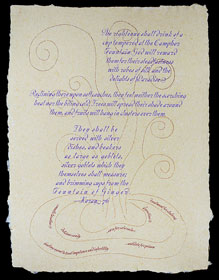 The righteous shall drink of a
cup tempered at the Camphor
Fountain. God will reward
them for their steadfastness
with robes of silk and the
delights of Paradise.
Reclining there upon soft couches, they feel neither the scorching
heat nor the biting cold. Trees will spread their shade around
them, and fruits will hang in clusters over them.
They shall be
served with silver
dishes, and beakers
as large as goblets,
silver goblets which they
themselves shall measure;
and brimming cups from the
Fountain of Ginger
Koran: 76